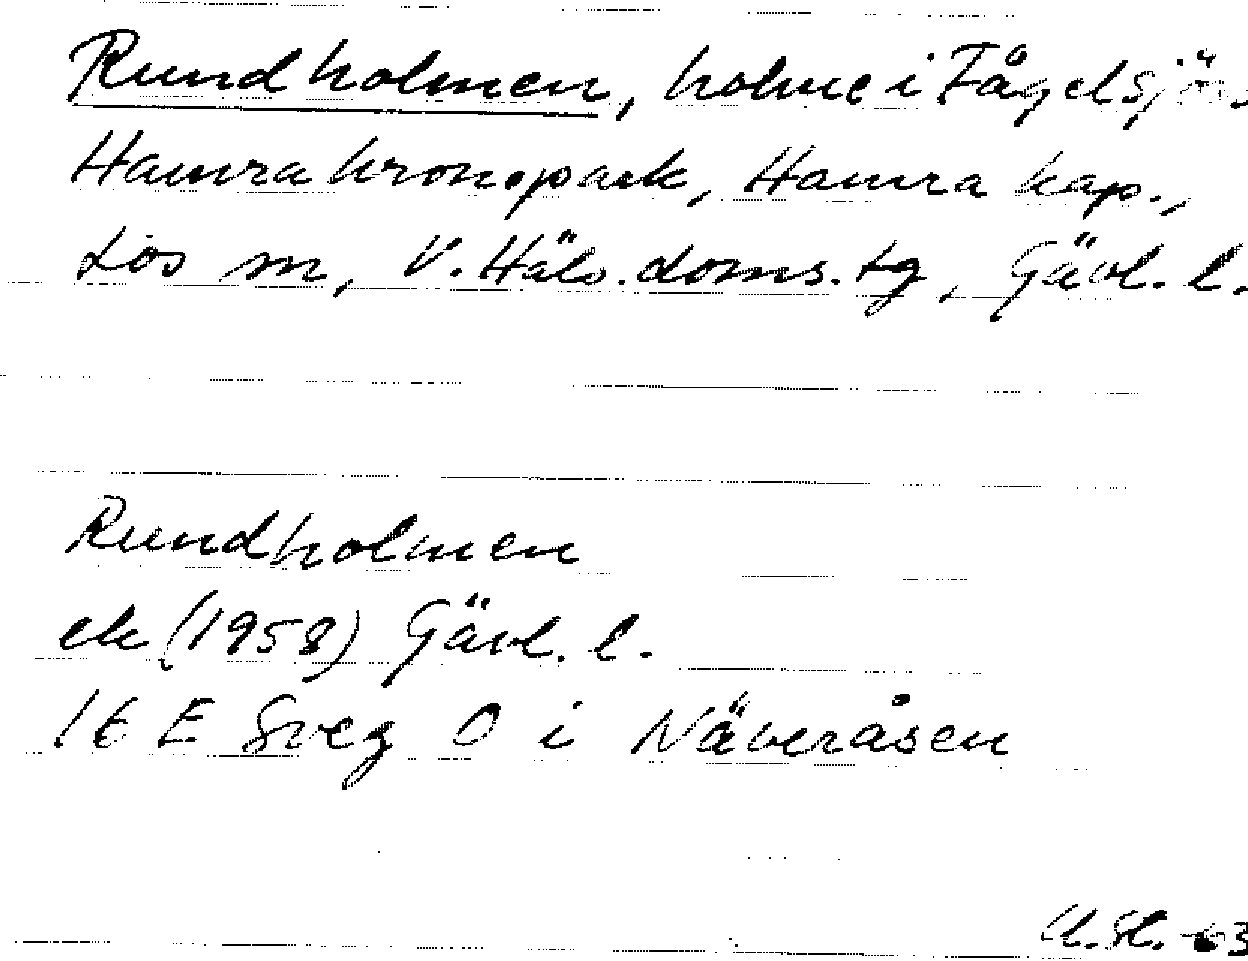 Rundholmen, holme i Fågelsjön
Hamra kronopark, Hamra kap.,
Los sn, V. Häls. doms. tg, Gävl. l.
Rundholmen
ek (1958) Gävl. l.
16 E Sveg O i Näveråsen
-63